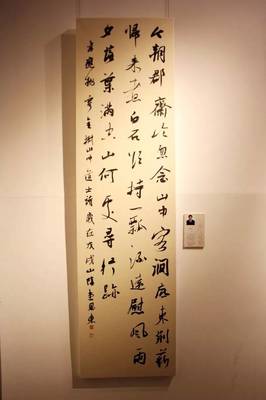 今朝郡齋冷忽念山中客澗底束荆薪
歸來煮白石欲持一瓢酒遠慰風雨
夕落葉满空山何處尋行跡
韋應物寄全椒山中道士詩歲在戊戌